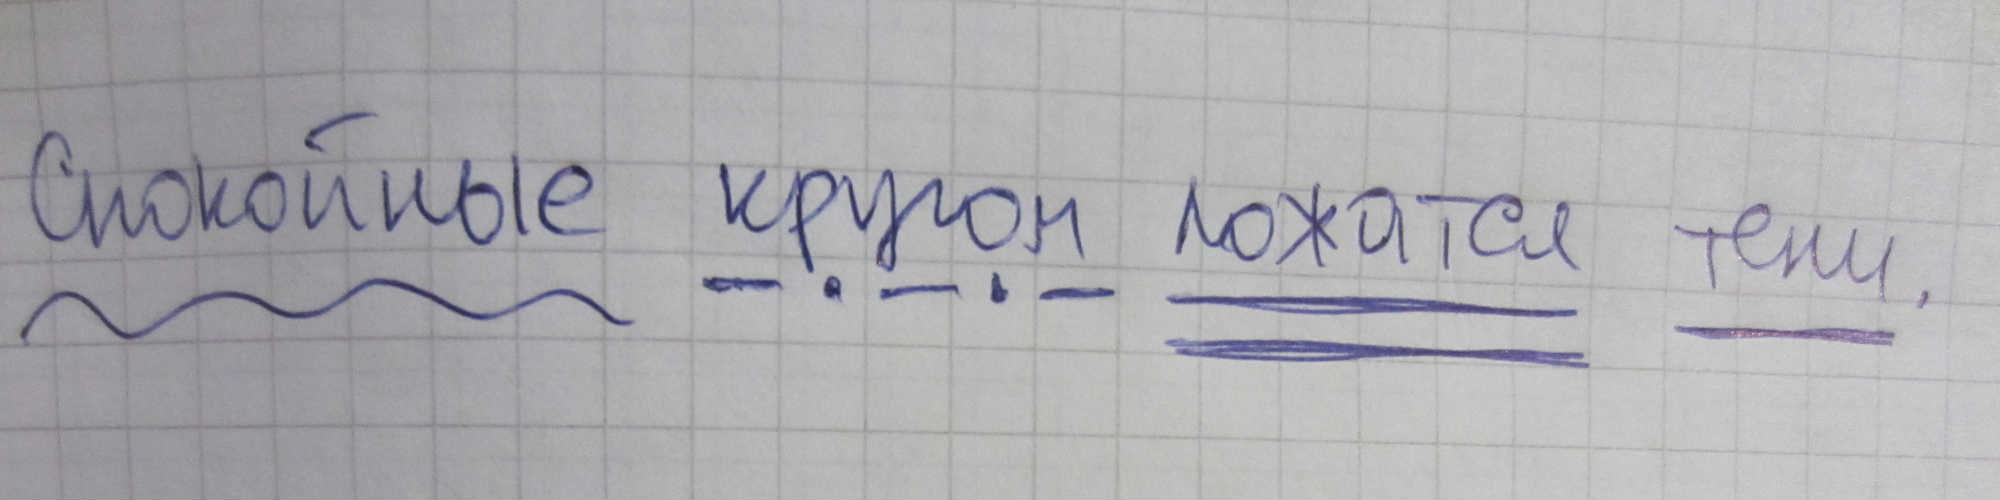 Спокойные кругом ложатся тени.